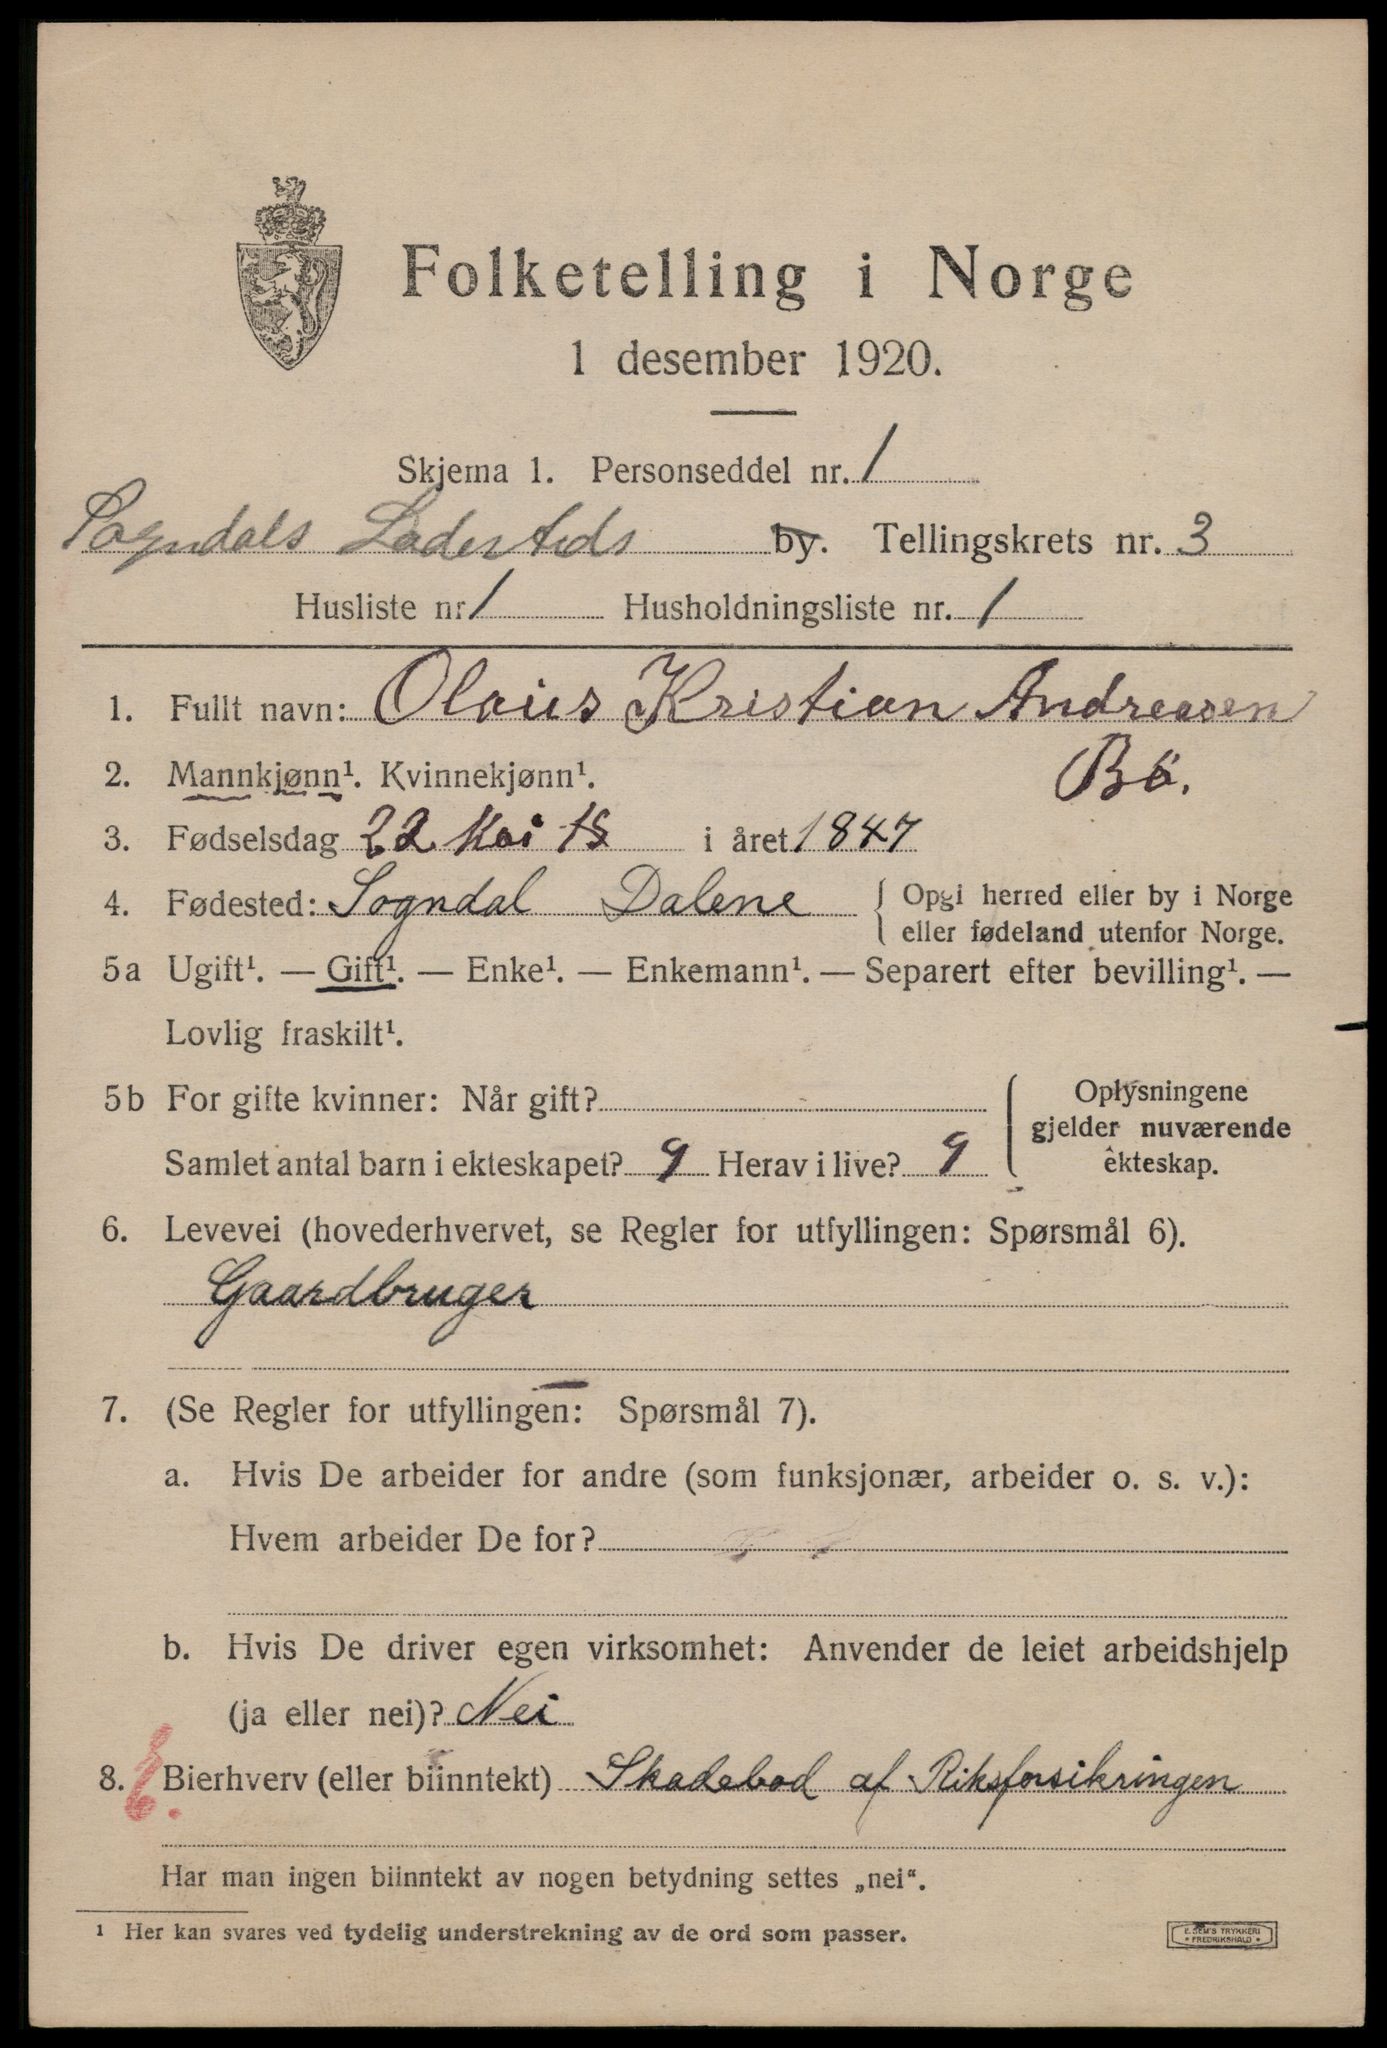 Folketelling i Norge
1 desember 1920.
Skjema 1. Personseddel nr. 1
Sogndals Ladesteds by. Tellingskrets nr. 3
Husliste nr 1 Husholdningsliste nr. 1
1. Fullt navn: Olaus Kristian Andreasen
Bö.
2. Mannkjønn¹. Kvinnekjønn¹.
3. Fødselsdag 22 Mai 18 i året 1847
4. Fødested: Sogndal Dalene { Opgi herred eller by i Norge
eller fødeland utenfor Norge.
5a Ugift¹. — Gift¹. — Enke¹. — Enkemann¹. — Separert efter bevilling¹. —
Lovlig fraskilt¹.
5b For gifte kvinner: Når gift? { Oplysningene
gjelder nuværende
ekteskap.
Samlet antal barn i ekteskapet? 9 Herav i live? 9
6. Levevei (hovederhvervet, se Regler for utfyllingen: Spørsmål 6).
Gaardbruger
7. (Se Regler for utfyllingen: Spørsmål 7).
a. Hvis De arbeider for andre (som funksjonær, arbeider o. s. v.):
Hvem arbeider De for?
b. Hvis De driver egen virksomhet: Anvender de leiet arbeidshjelp
(ja eller nei)? Nei
8. Bierhverv (eller biinntekt) Skadebod af Riksforsikringen
Har man ingen biinntekt av nogen betydning settes „nei“.
¹ Her kan svares ved tydelig understrekning av de ord som passer.
E. SEM'S TRYKKERI
* FREDRIKSHALD *